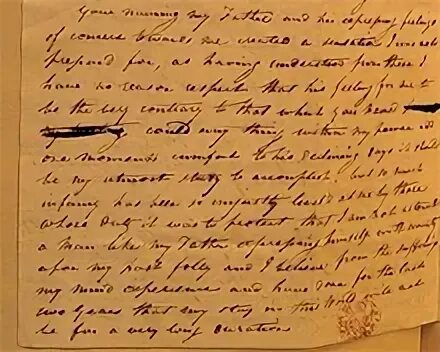 Your naming my Father and his expressing feelings
of concern towards me created a sensation I was not
prepared for, as having understood from those I
have no reason respect that his feeling for me to
be the very contrary to that which you read
could any thing within my power add
one moments comfort to his declining days it should
be my utmost study to accomplish but so much
infamy has been so unjustly by those
whose duty it was to protect that I am not
a man like my Father expressing himself with
upon my past folly and I believe from the suffering
my mind experience and have done for the last
two years that my stay in this world
be for a very long duration